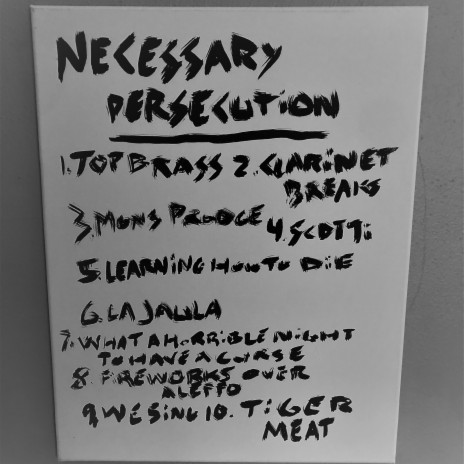 NECESSARY
PERSECUTION
1. TOP BRASS 2. CLARINET
BREAKS
3. MONS 4. SCOTTI
5. LEARNING HOW TO DIE
6. LA JAULA
7. WHAT A HORRIBLE NIGHT
TO HAVE A CURSE
8. FIREWORKS OVER
ALEPPO
9. WE SING 10. TIGER
MEAT